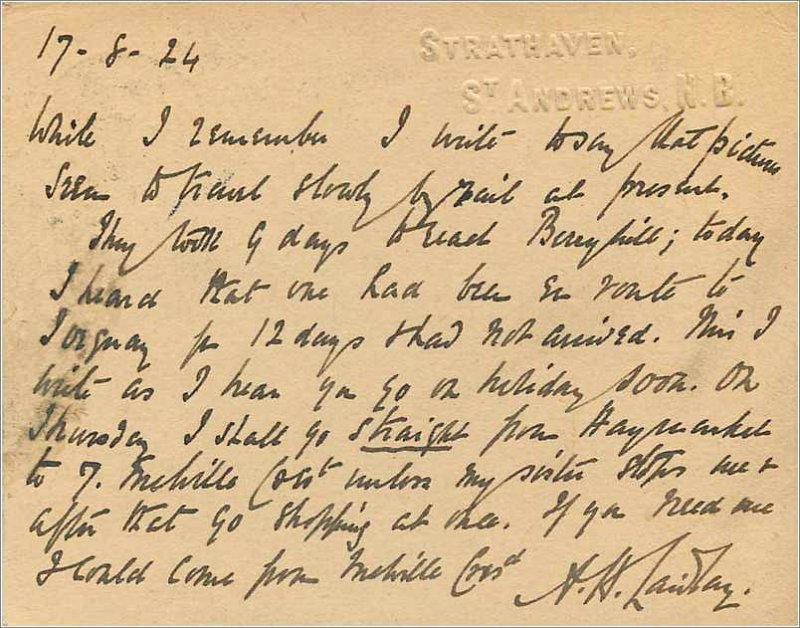 17-8-24
STRATHAVEN,
ST ANDREWS, N.B.
While I remember I write to say that pictures
seem to travel slowly by rail at present.
They took 9 days to reach Berryhill; today
I heard that one had been en route to
Torquay for 12 days & had not arrived. This I
write as I hear you go on holiday soon. On
Thursday I shall go straight from Haymarket
to 7. Melville Crest unless my sister stops me &
after that go shopping at once. If you need me
I could come from Melville Crest
A. H.